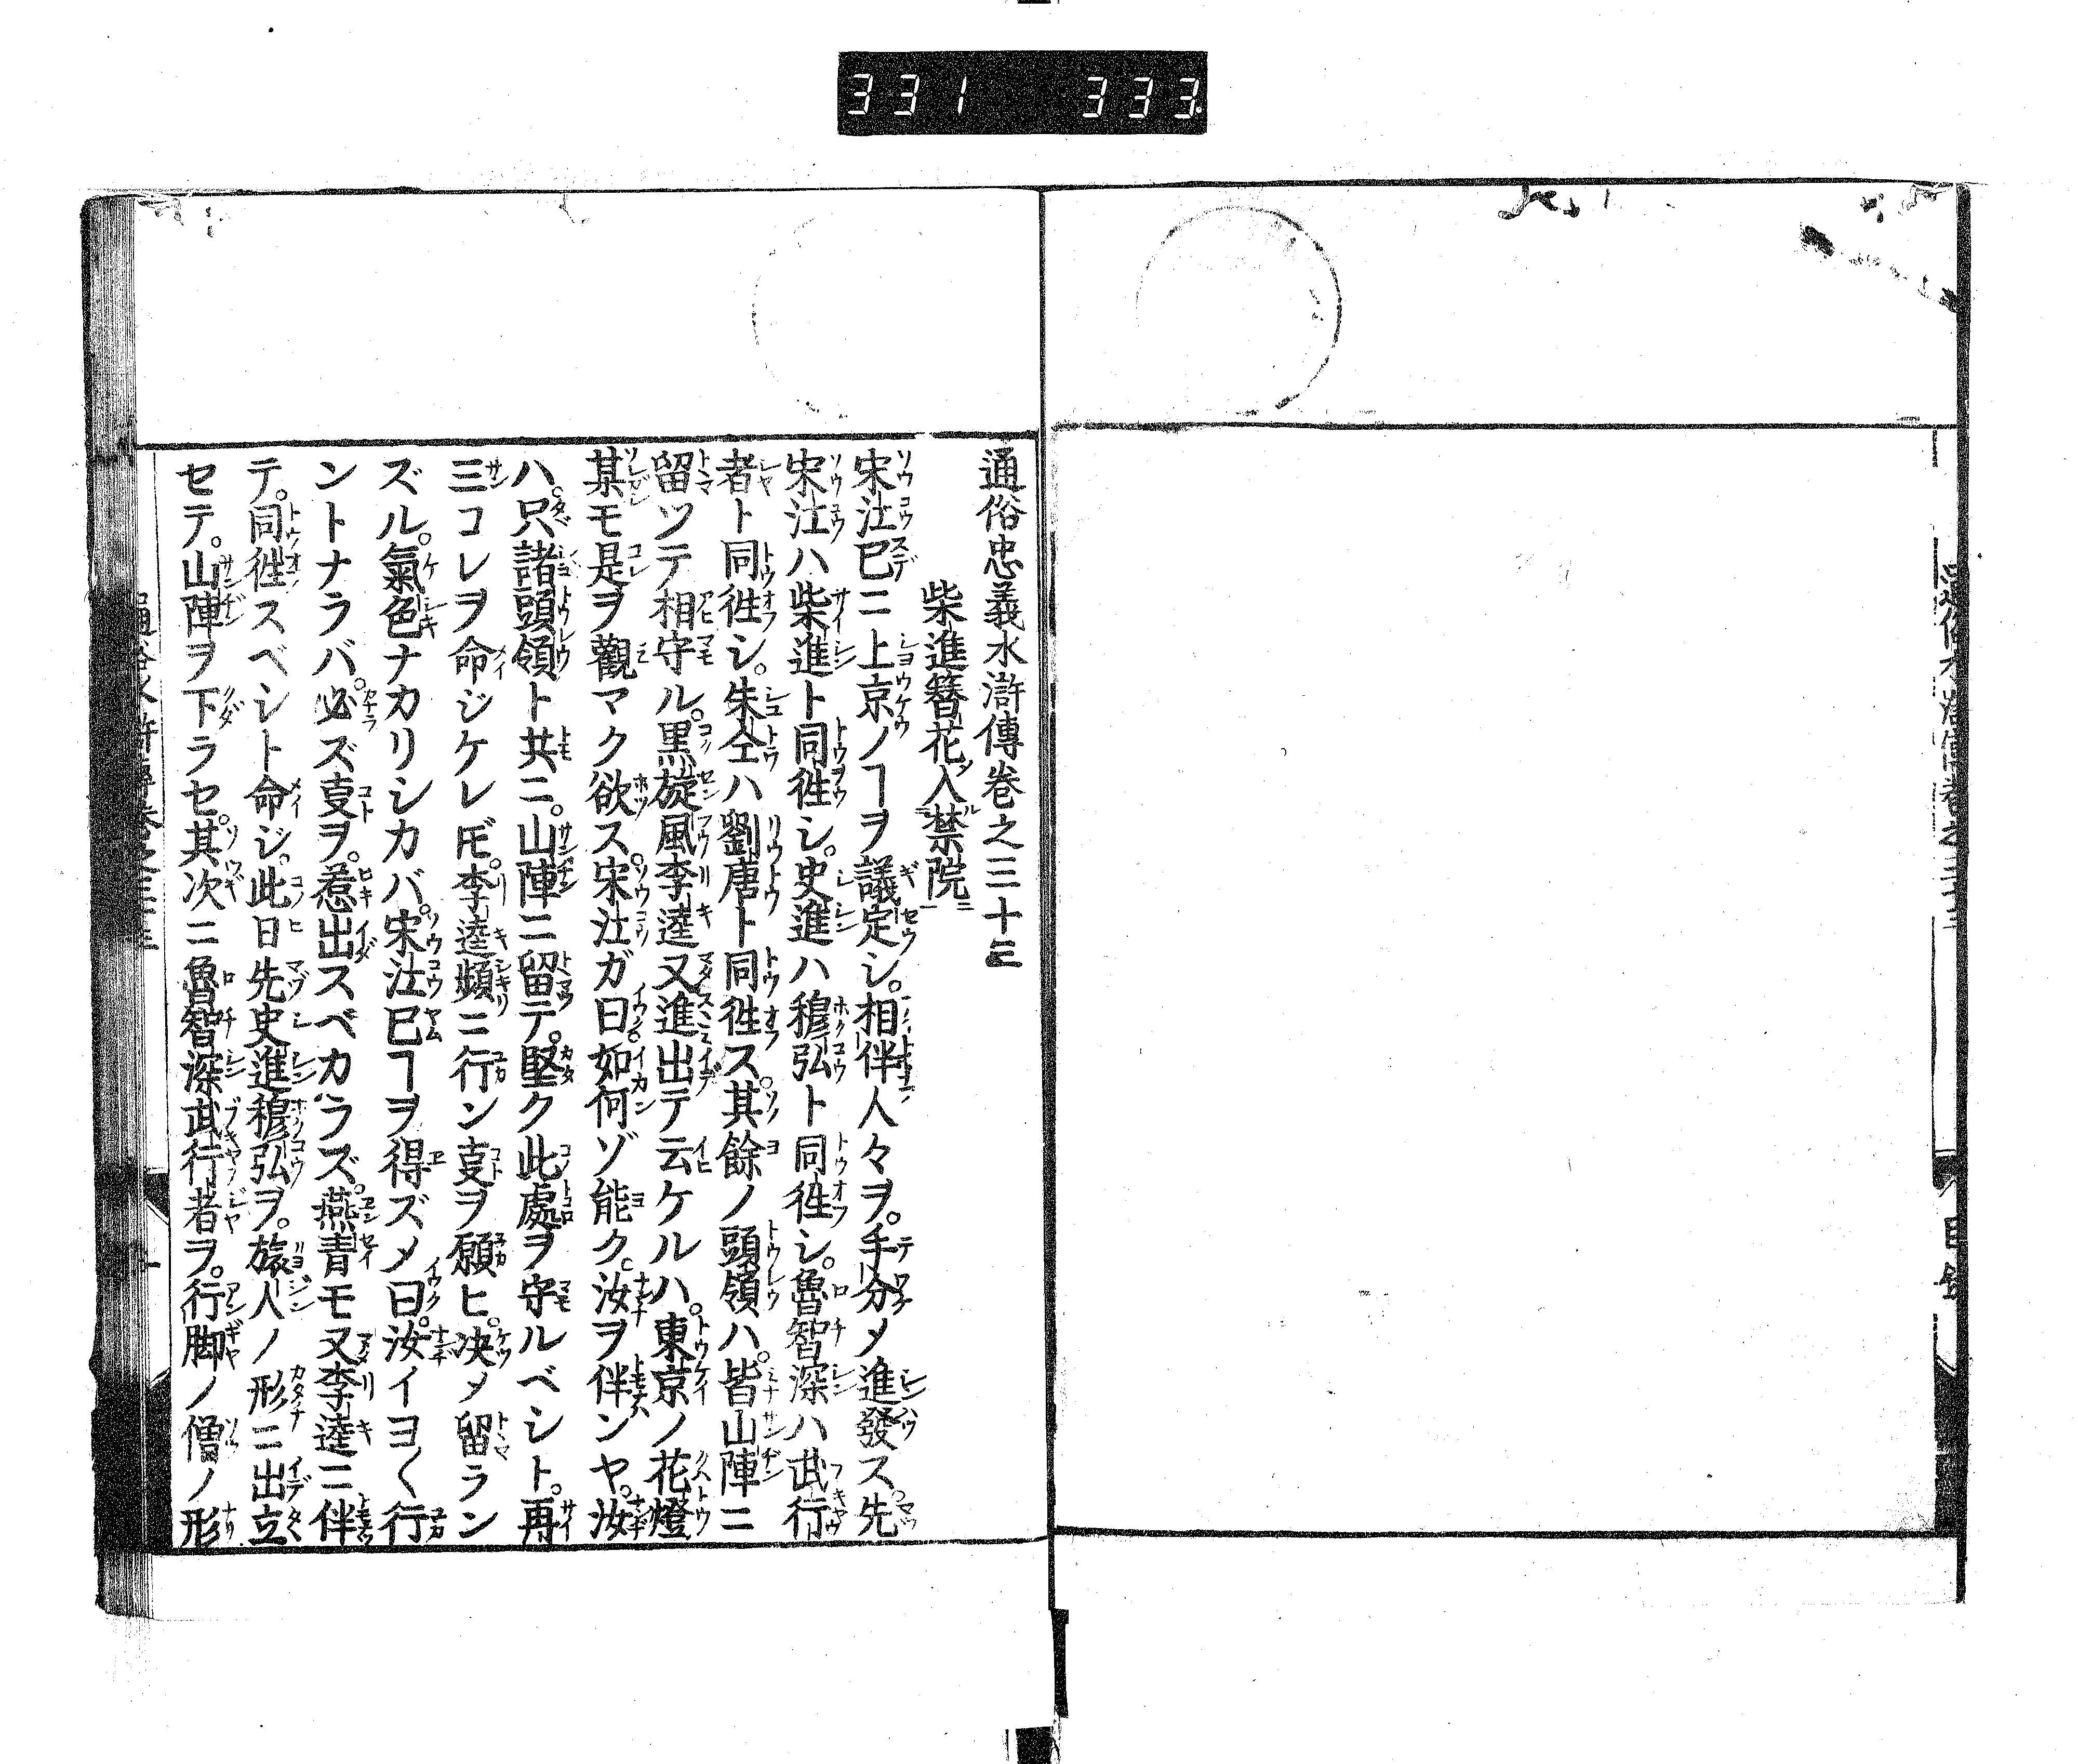 331 333
通俗忠義水滸傳卷之三十三
柴進簪花入禁院
宋江已ニ上京ノヿヲ議定シ。相伴人々ヲ。手分メ進發ス先
宋江ハ柴進ト同徃シ。史進ハ穆弘ト同徃シ。魯智深ハ武行
者ト同徃シ。朱仝ハ劉唐ト同徃ス。其餘ノ頭領ハ。皆山陣ニ
留ツテ相守ル。黒旋風李逵又進出テ云ケルハ。東京ノ花燈
某モ是ヲ觀マク欲ス。宋江ガ曰。如何ゾ能ク。汝ヲ伴ンヤ。汝
ハ。只諸頭領ト共ニ。山陣ニ留テ。堅ク此處ヲ守ルベシト。再
三コレヲ命ジケレ𪜈。李逵頻ニ行ン叓ヲ願ヒ。决メ留ラン
ズル。氣色ナカリシカバ。宋江已ヿヲ得ズメ曰。汝イヨ〱行
ントナラバ。必ズ叓ヲ。惹出スベカラズ。燕青モ又李逵ニ伴
テ。同徃スベシト命ジ。此日先史進穆弘ヲ。旅人ノ形ニ出立
セテ。山陣ヲ下ラセ。其次ニ魯智深武行者ヲ。行脚ノ僧ノ形